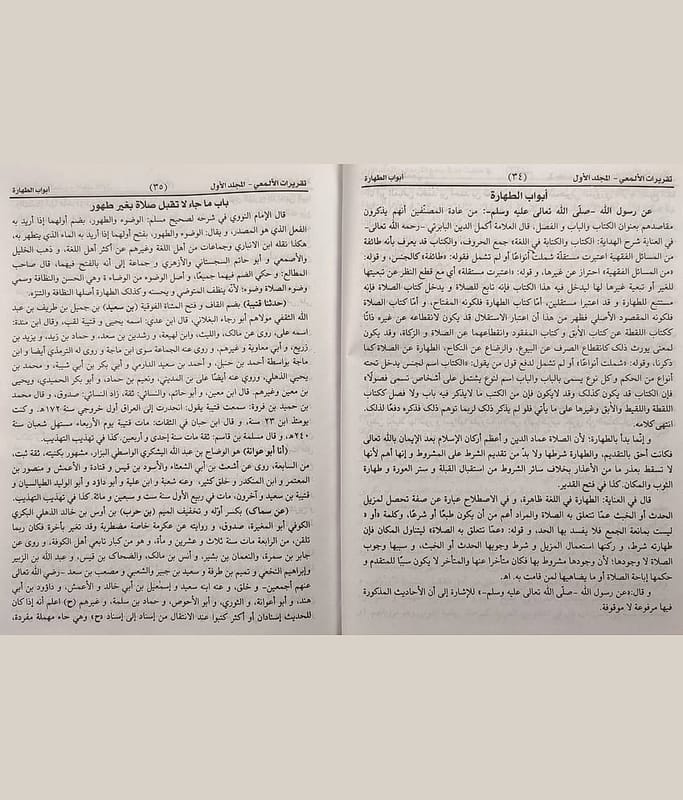 تقريرات الألمعي - المجلد الأول (٣٤) أبواب الطهارة
أبواب الطهارة
عن رسول الله -صلّى الله تعالى عليه وسلم-: من عادة المصنّفين أنهم يذكرون
مقاصدهم بعنوان الكتاب والباب و الفصل، قال العلامة أكمل الدين البابرتي -رحمه الله تعالى-
في العناية شرح الهداية: الكتاب والكتابة في اللغة» جمع الحروف، والكتاب قد يعرف بأنه طائفة
من المسائل الفقهية اعتبرت مستقلّة شملت أنواعًا أو لم تشمل فقوله: «طائفة» كالجنس، و قوله:
«من المسائل الفقهية» احتراز عن غيرها، و قوله: «اعتبرت مستقلة» أي مع قطع النظر عن تبعيتها
للغير أو تبعية غيرها لها ليدخل فيه هذا الكتاب فإنه تابع للصلاة و يدخل كتاب الصلاة فإنه
مستتبع للطهارة و قد اعتبرا مستقلين، أمّا كتاب الطهارة فلكونه المفتاح، و أمّا كتاب الصلاة
فلكونه المقصود الأصلي فظهر من هذا أن اعتبار الاستقلال قد يكون لانقطاعه عن غيره ذاتًا
ككتاب اللقطة عن كتاب الآبق و كتاب المفقود وانقطاعهما عن الصلاة و الزكاة، وقد يكون
لمعنى يورث ذلك كانقطاع الصرف عن البيوع، والرضاع عن النكاح، الطهارة عن الصلاة كما
ذكرنا، وقوله: «شملت أنواعًا» أو لم تشمل لدفع قول من يقول: «الكتاب اسم لجنس يدخل تحته
أنواع من الحكم و كل نوع يسمى بالباب والباب اسم لنوع يشتمل على أشخاص تسمى فصولًا»
فإن الكتاب قد يكون كذلك وقد لايكون فإن من الكتب ما لايذكر فيه باب ولا فصل ككتاب
اللقطة واللقيط والآبق وغيرها على ما يأتي فلو لم يذكر ذلك لربما توهم ذلك فذكره دفعًا لذلك.
انتهى كلامه.
و إنّما بدأ بالطهارة؛ لأن الصلاة عماد الدين و أعظم أركان الإسلام بعد الإيمان بالله تعالى
فكانت أحق بالتقديم، والطهارة شرطها ولا بدّ من تقديم الشرط على المشروط و إنها أهم لأنها
لا تسقط بعذر ما من الأعذار بخلاف سائر الشروط من استقبال القبلة و ستر العورة و طهارة
الثوب والمكان. كذا في فتح القدير.
قال في العناية: الطهارة في اللغة ظاهرة، و في الاصطلاح عبارة عن صفة تحصل لمزيل
الحدث أو الخبث عمّا تتعلق به الصلاة والمراد أعم من أن يكون طبعًا أو شرعًا، وكلمة «أو»
ليست بمانعة الجمع فلا يفسد بها الحد، و قوله: «عمّا تتعلق به الصلاة» ليتناول المكان فإن
طهارته شرط، و ركنها استعمال المزيل و شرط وجوبها الحدث أو الخبث، و سببها وجوب
الصلاة لا وجودها؛ لأن وجودها مشروط بها فكان متأخرًا عنها والمتأخر لا يكون سببًا للمتقدم و
حكمها إباحة الصلاة أو ما يضاهيها لمن قامت به. اهـ.
و قال: «عن رسول الله -صلّى الله تعالى عليه وسلم-» للإشارة إلى أن الأحاديث المذكورة
فيها مرفوعة لا موقوفة.
تقريرات الألمعي - المجلد الأول (٣٥) أبواب الطهارة
باب ما جاء لا تقبل صلاة بغير طهور
قال الإمام النووي في شرحه لصحيح مسلم: الوضوء والطهور، بضم أولهما إذا أريد به
الفعل الذي هو المصدر، و يقال: الوضوء والطهور، بفتح أولهما إذا أريد به الماء الذي يتطهر به،
هكذا نقله ابن الانباري وجماعات من أهل اللغة وغيرهم عن أكثر أهل اللغة، و ذهب الخليل
والأصمعي و أبو حاتم السجستاني والأزهري و جماعة إلى أنه بالفتح فيهما، قال صاحب
المطالع: و حكي الضم فيهما جميعًا، و أصل الوضوء من الوضاءة و هي الحسن والنظافة وسمي
وضوء الصلاة وضوءا؛ لأنه ينظف المتوضي و يحسنه و كذلك الطهارة أصلها النظافة والتنزه.
(حدثنا قتيبة) بضم القاف و فتح المثناة الفوقية (بن سعيد) بن جميل بن طريف بن عبد
الله الثقفي مولاهم أبو رجاء البغلاني، قال ابن عدي: اسمه يحيى و قتيبة لقب، وقال ابن مندة:
اسمه علي، روى عن مالك، والليث، وابن لهيعة، و رشدين بن سعد، و حماد بن زيد، و يزيد بن
زريع، و أبي معاوية و غيرهم. و روى عنه الجماعة سوى ابن ماجة و روى له الترمذي أيضا و ابن
ماجة بواسطة أحمد بن حنبل، و أحمد بن سعيد الدارمي و أبي بكر بن أبي شيبة، و محمد بن
يحيى الذهلي، وروى عنه أيضًا على بن المديني، ونعيم بن حماد، و أبو بكر الحميدي، ويحيى
بن معين وغيرهم. قال ابن معين، و أبو حاتم، والنسائي: ثقة، زاد النسائي: صدوق، و قال محمد
بن حميد بن فروة: سمعت قتيبة يقول: انحدرت إلى العراق أول خروجي سنة ١٧٢هـ، و كنت
يومئذ ابن ٢٣ سنة، و قال ابن حبان في الثقات: مات قتيبة يوم الأربعاء مستهل شعبان سنة
٢٤٠هـ، و قال مسلمة بن قاسم: ثقة مات سنة إحدى و أربعين. كذا في تهذيب التهذيب.
(أنا أبو عوانة) هو الوضاح بن عبد الله اليشكري الواسطي البزار، مشهور بكنيته، ثقة ثبت،
من السابعة، روى عن أشعث بن أبي الشعثاء والأسود بن قيس و قتادة و الأعمش و منصور بن
المعتمر و ابن المنكدر و خلق كثير، وعنه شعبة و ابن علية و أبو داؤد و أبو الوليد الطيالسيان و
قتيبة بن سعيد و آخرون، مات في ربيع الأول سنة ست و سبعين و مائة. كذا في تهذيب التهذيب.
(عن سماك) بكسر أوّله و تخفيف الميم (بن حرب) بن أوس بن خالد الذهلي البكري
الكوفي أبو المغيرة، صدوق، و روايته عن عكرمة خاصة مضطربة وقد تغير بأخرة فكان ربما
تلقن، من الرابعة مات سنة ثلاث و عشرين و مأة، و هو من كبار تابعي أهل الكوفة، و روى عن
جابر بن سمرة، والنعمان بن بشير، و أنس بن مالك، والضحاك بن قيس، و عبد الله بن الزبير
وإبراهيم النخعي و تميم بن طرفة و سعيد بن جبير والشعبي و مصعب بن سعد -رضي الله تعالى
عنهم أجمعين- و خلق، و عنه ابنه سعيد و إسمٰعيل بن أبي خالد و الأعمش، و داؤود بن أبي
هند، و أبو عوانة، و الثوري، و أبو الأحوص، و حماد بن سلمة، و غيرهم (ح) اعلم أنه إذا كان
للحديث إسنادان أو أكثر كتبوا عند الانتقال من إسناد إلى إسناد «ح» وهي حاء مهملة مفردة،